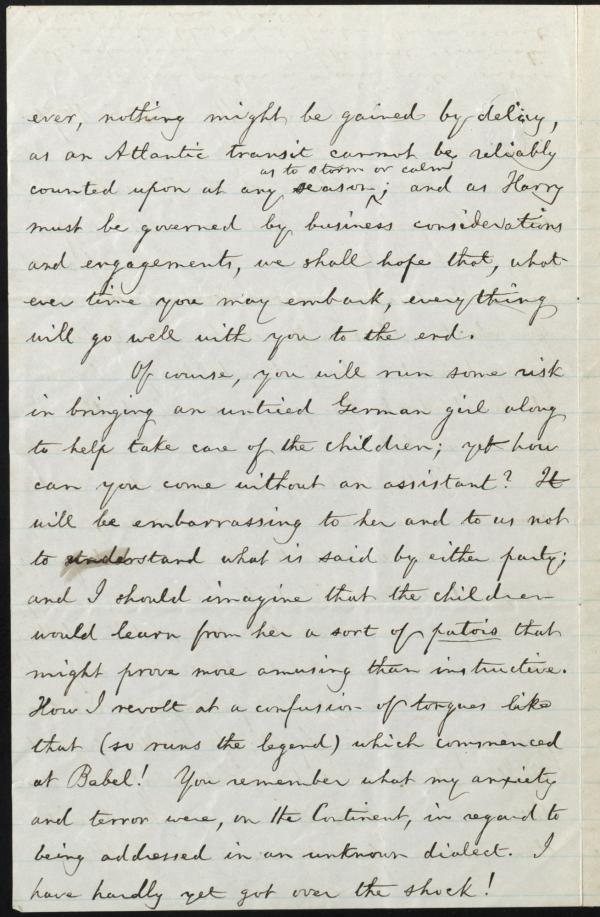 ever, nothing might be gained by delay,
as an Atlantic transit cannot be reliably
as to storm or calm
counted upon at any season; and as Harry
must be governed by business considerations
and engagements, we shall hope that, what-
ever time you may embark, everything
will go well with you to the end.
Of course, you will run some risk
in bringing an untried German girl along
to help take care of the children; yet how
can you come without an assistant? It
will be embarrassing to her and to us not
to understand what is said by either party;
and I should imagine that the children
would learn from her a sort of patois that
might prove more amusing than instructive.
How I revolt at a confusion of tongues like
that (so runs the legend) which commenced
at Babel! You remember what my anxiety
and terror were, on the Continent, in regard to
being addressed in an unknown dialect. I
have hardly yet got over the shock!